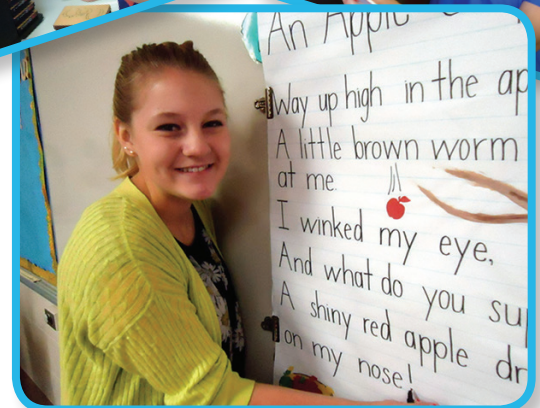 An Apple
Way up high in the
A little brown worm
at me.
I winked my eye,
And what do you
A shiny red apple
on my nose!